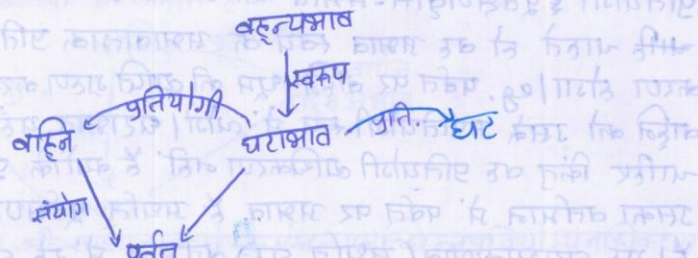 वह्न्यभाव
स्वरूप
प्रतियोगी
वह्नि घटाभाव प्रति. घट
संयोग
पर्वत